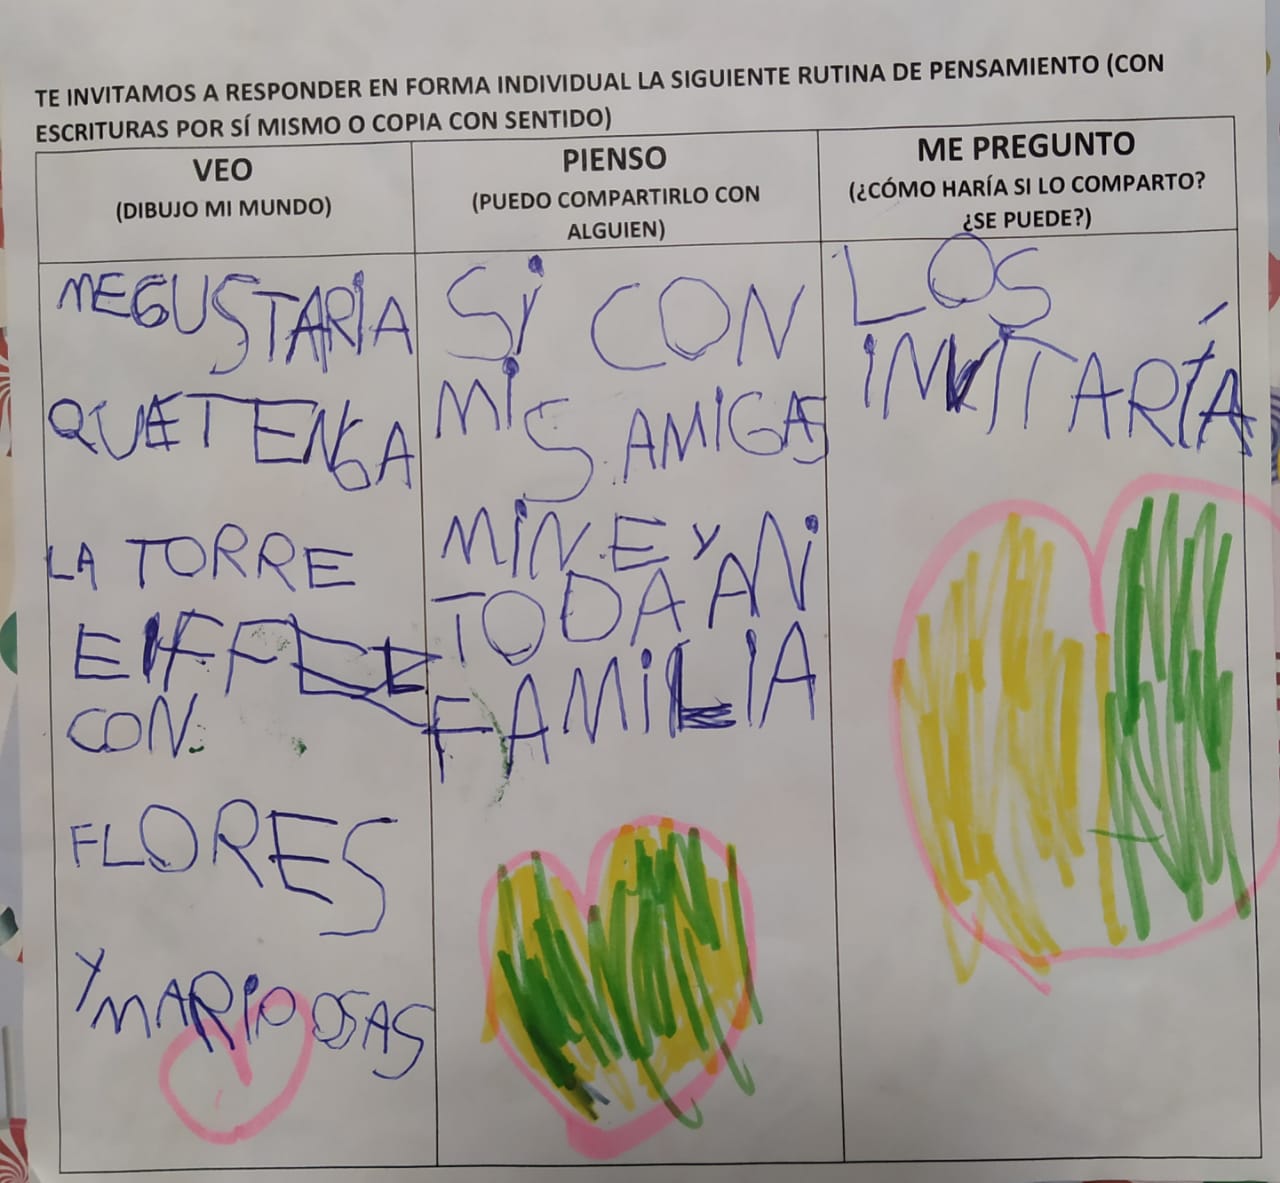 TE INVITAMOS A RESPONDER EN FORMA INDIVIDUAL LA SIGUIENTE RUTINA DE PENSAMIENTO (CON
ESCRITURAS POR SÍ MISMO O COPIA CON SENTIDO)
VEO
(DIBUJO MI MUNDO)
MEGUSTARiA
QUETENGA
LA TORRE
EIFFEL
CON
FLORES
Y MARiPOSAS
PIENSO
(PUEDO COMPARTIRLO CON
ALGUIEN)
Si CON
MiS AMIGAS
MiNE Y ANi
TODA
FAMiLIA
ME PREGUNTO
(¿CÓMO HARÍA SI LO COMPARTO?
¿SE PUEDE?)
LOS
iNViTARÍA